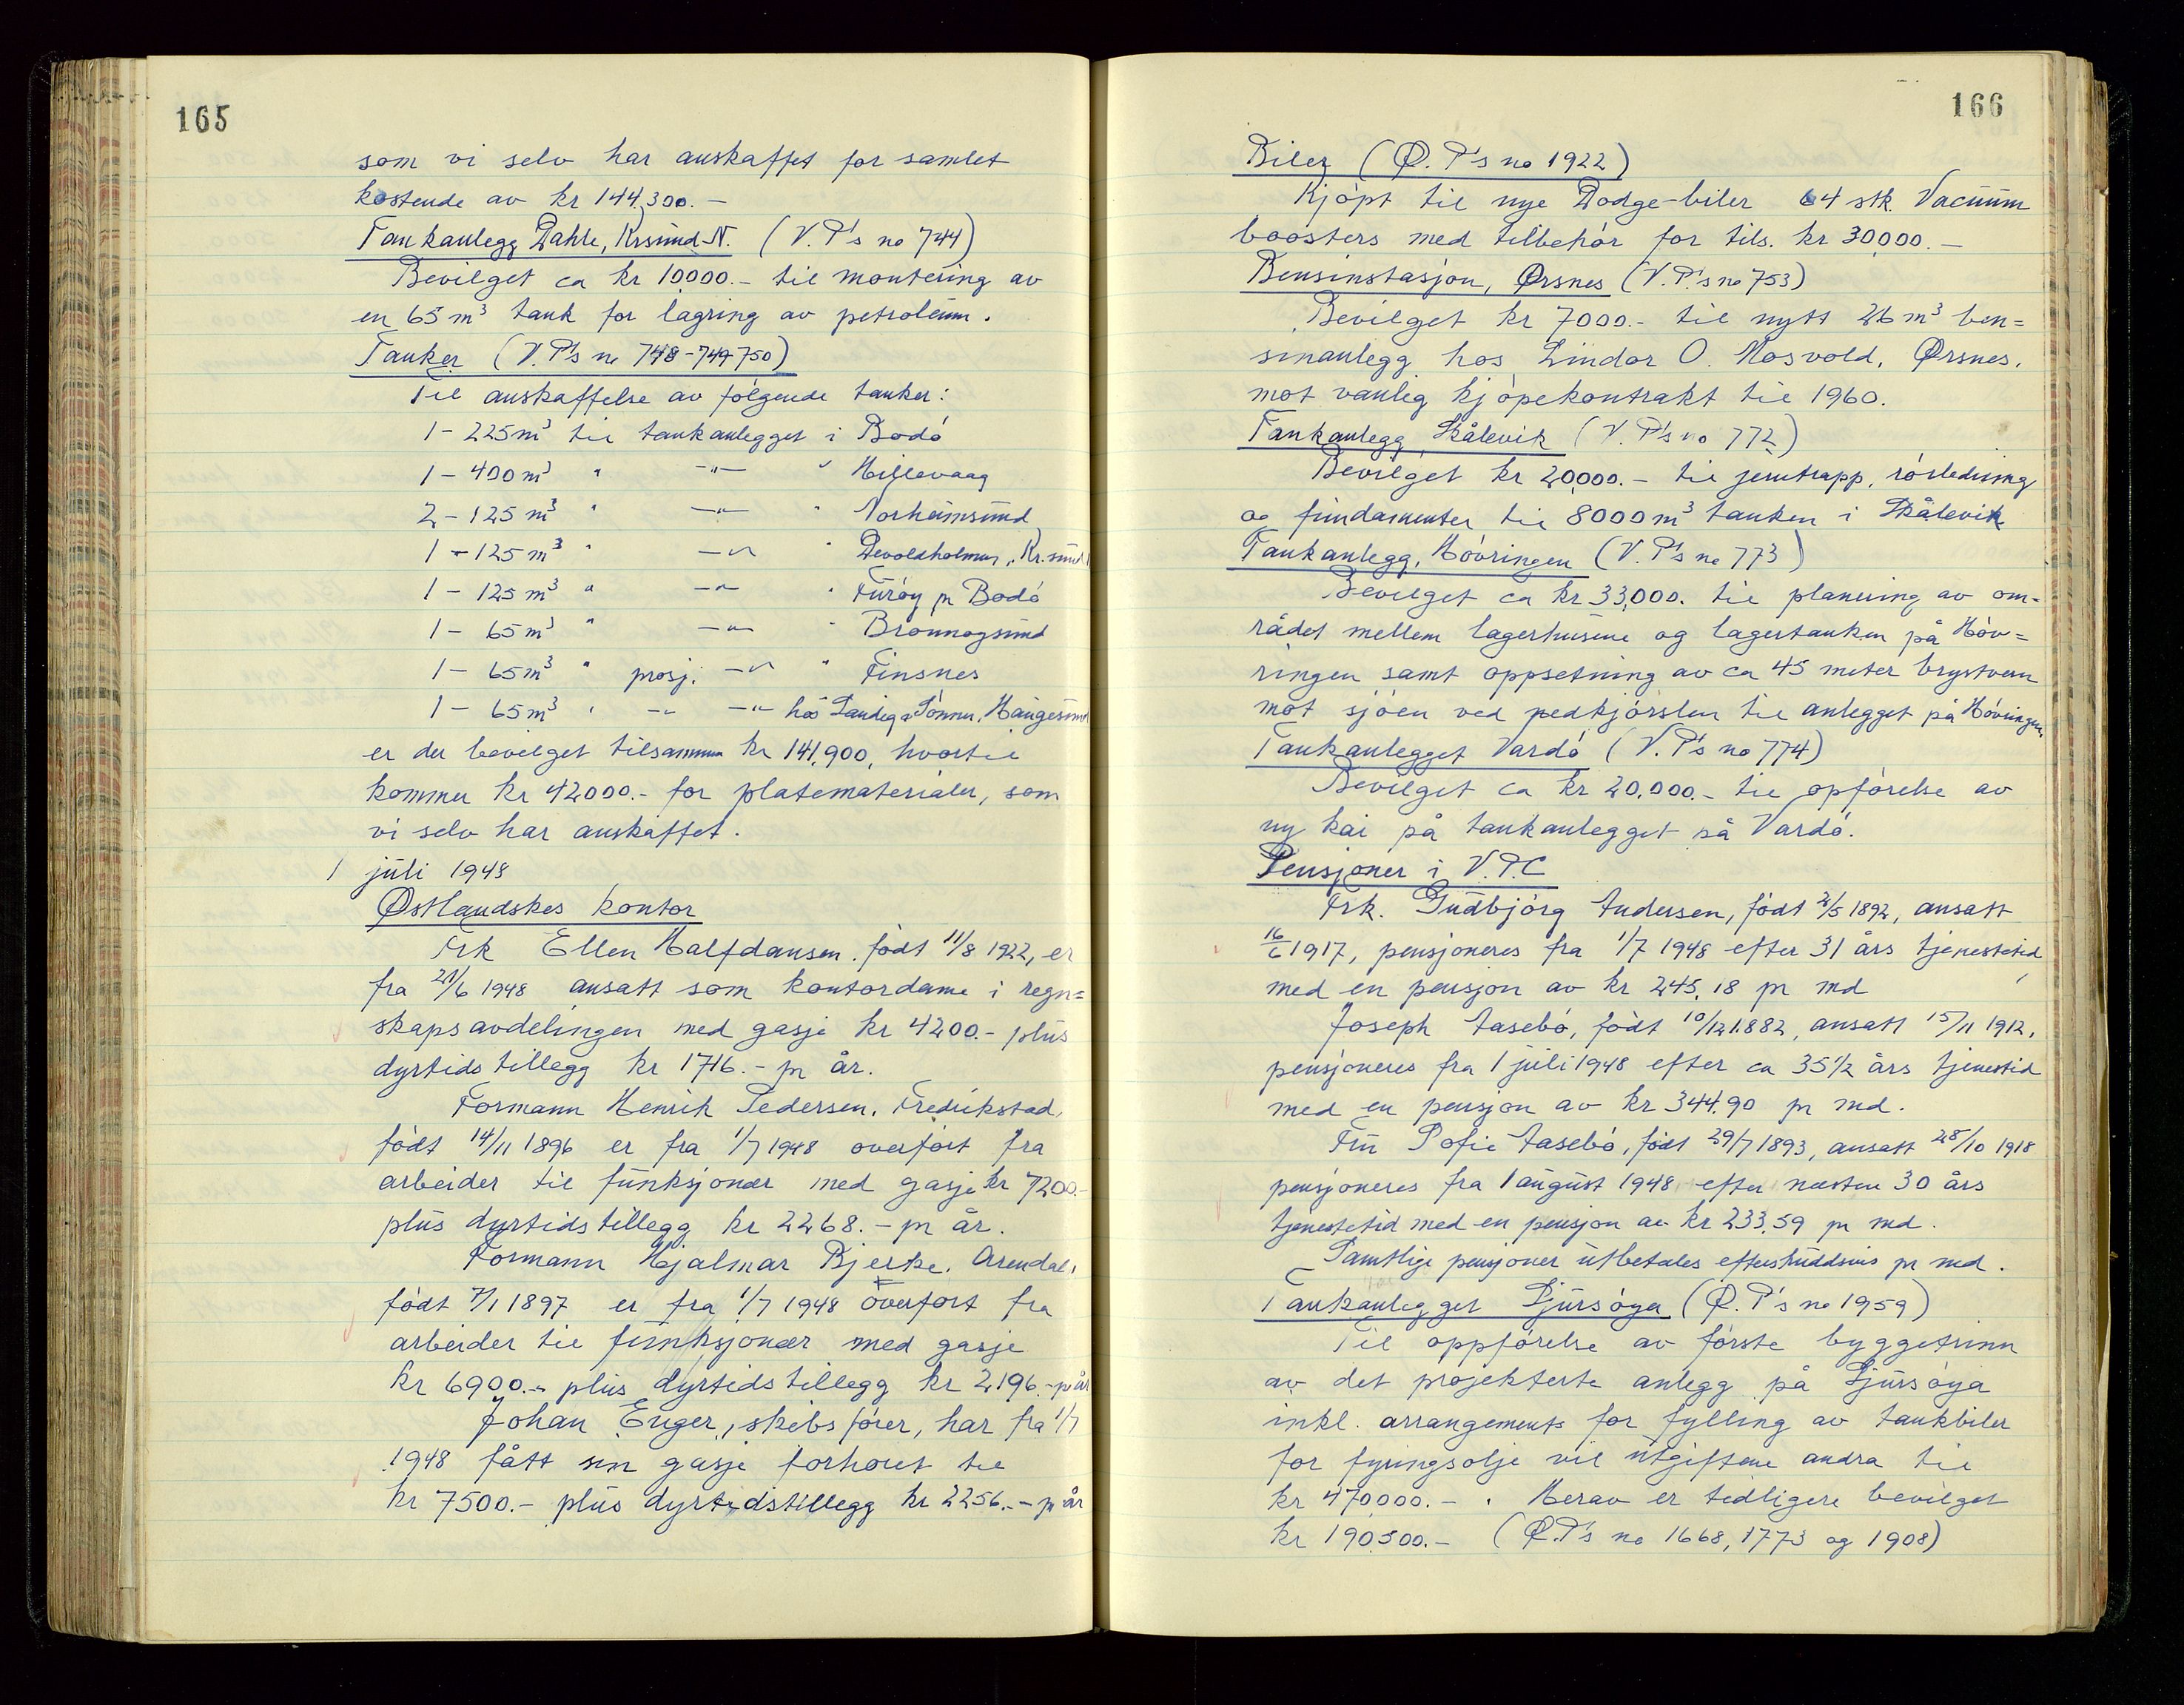 165
som vi selv har anskaffet for samlet
kostende av kr 144.300.-
Tankanlegg Dahle, Krsund-N. (V.P's no 744)
Bevilget ca kr 10.000.- til montering av
en 65 m³ tank for lagring av petroleum.
Tanker (V.P's no 748-749-750)
Til anskaffelse av følgende tanker:
1 - 225 m³ til tankanlegget i Bodø
1 - 400 m³ " -"- " Hillevaag
2 - 125 m³ " -"- " Norheimsund
1 - 125 m³ " -"- " Devoldholmen, Kr.sund
1 - 125 m³ " -"- " Furøy pr Bodø
1 - 65 m³ " -"- " Brønnøysund
1 - 65 m³ " prosj. -"- " Finsnes
1 - 65 m³ " -"- -"- hos Sønner, Haugesund
er der bevilget tilsammen kr 141.900, hvortil
kommer kr 42000.- for platematerialer, som
vi selv har anskaffet.
1 juli 1948
Østlandskes kontor
Frk Ellen Halfdansen. født 11/8 1922, er
fra 21/6 1948 ansatt som kontordame i regn=
skapsavdelingen med gasje kr 4200.- plus
dyrtidstillegg kr 1716.- pr år.
Formann Henrik Pedersen, Fredrikstad,
født 14/11 1896 er fra 1/7 1948 overført fra
arbeider til funksjonær med gasje kr 7200.-
plus dyrtidstillegg kr 2268.- pr år.
Formann Hjalmar Bjerke, Arendal,
født 7/1 1897 er fra 1/7 1948 overført fra
arbeider til funksjonær med gasje
kr 6900.- plus dyrtidstillegg kr 2196.- pr år
Johan Enger, skibsfører, har fra 1/7
1948 fått sin gasje forhøiet til
kr 7500.- plus dyrtidstillegg kr 2256.- pr år
166
Biler (Ø.P's no 1922)
Kjøpt til nye Dodge-biler 64 stk. Vacuum
boosters med tilbehør for tils. kr 30.000.-
Bensinstasjon, Ørsnes (V.P.'s no 753)
Bevilget kr 7000.- til nytt 26 m³ ben=
sinanlegg hos Lindor O. Mosvold, Ørsnes,
mot vanlig kjøpekontrakt til 1960.
Tankanlegg Skålevik (V.P's no 772)
Bevilget kr 20.000.- til jerntrapp, rørledning
og fundamenter til 8000 m³ tanken i Skålevik
Tankanlegg, Høvringen (V.P's no 773)
Bevilget ca kr 33.000. til planering av om-
rådet mellem lagerhusene og lagertanken på Høv=
ringen samt oppsetning av ca 45 meter brystvern
mot sjøen ved nedkjørslen til anlegget på Høvringen.
Tankanlegget Vardø (V.P's no 774)
Bevilget ca kr 20.000.- til opførelse av
ny kai på tankanlegget på Vardø.
Pensjoner i V.P.C
Frk. Gudbjørg Andersen, født 2/5 1892, ansatt
16/6 1917, pensjoneres fra 1/7 1948 efter 31 års tjenestetid
med en pensjon av kr 245,18 pr md
Joseph Aasebø, født 10/12 1882, ansatt 15/11 1912,
pensjoneres fra 1 juli 1948 efter ca 35 1/2 års tjenestid
med en pensjon av kr 344.90 pr md.
Fru Sofie Aasebø, født 29/7 1893, ansatt 28/10 1918
pensjoneres fra 1 august 1948 efter næsten 30 års
tjenestetid med en pensjon av kr 233,59 pr md.
Samtlige pensjoner utbetales efterskuddsvis pr md.
Tankanlegget Sjursøya (Ø.P's no 1959)
Til oppførelse av første byggetrinn
av det projekterte anlegg på Sjursøya
inkl. arrangements for fylling av tankbiler
for fyringsolje vil utgiftene andra til
kr 470000.-. Herav er tidligere bevilget
kr 190500.- (Ø.P's no 1668, 1773 og 1908)